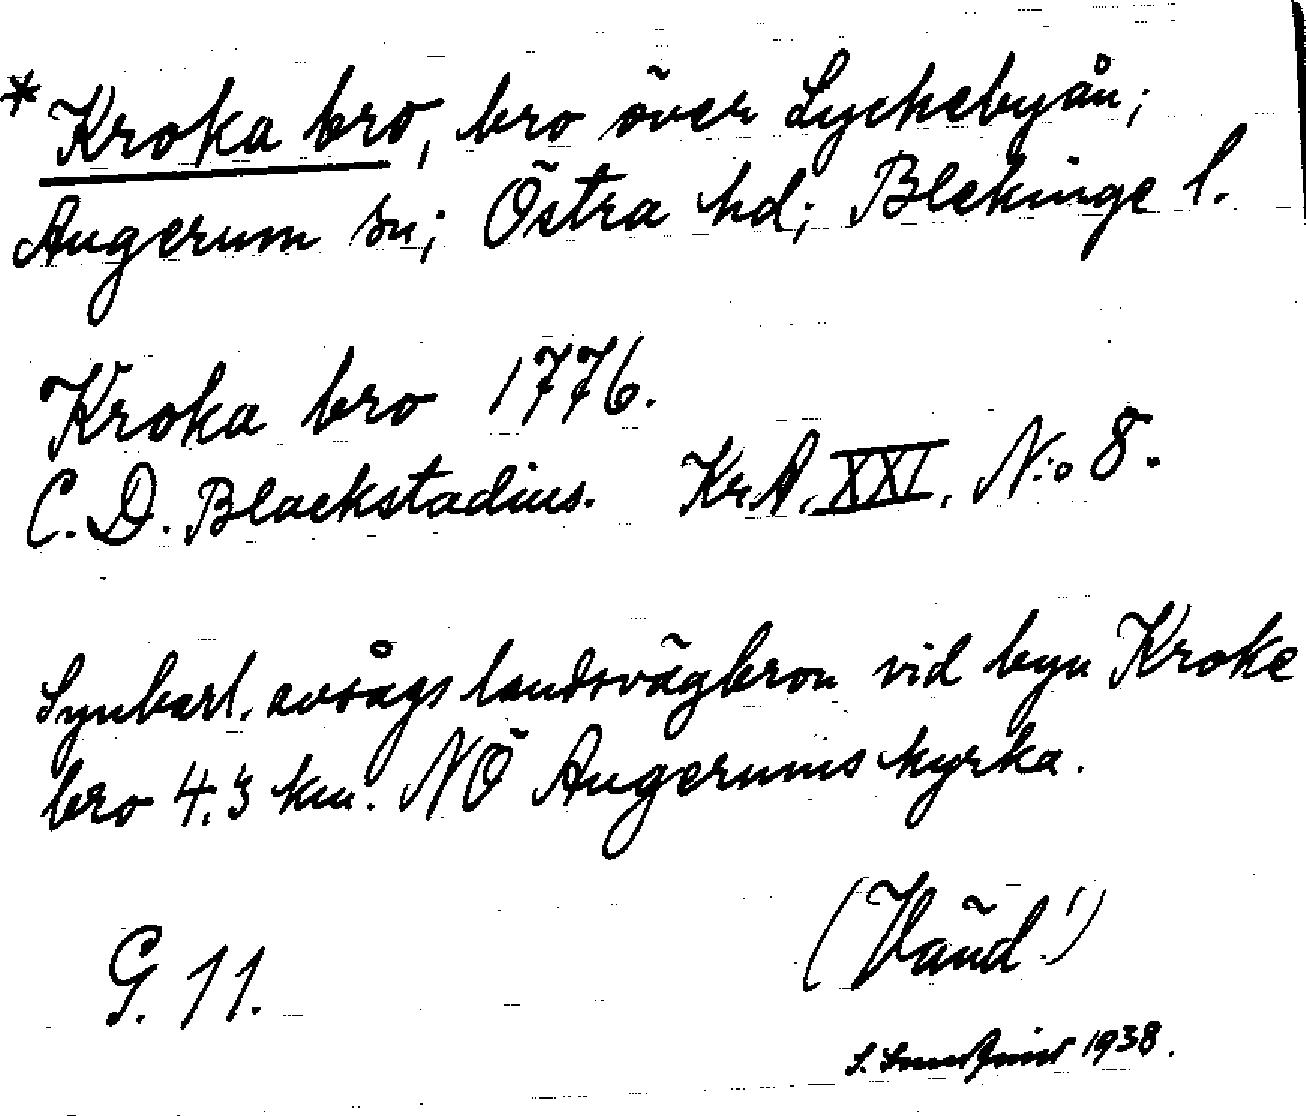 *Kroka bro, bro över Lyckebyån;
Augerum sn; Östra hd; Blekinge l.
Kroka bro 1776.
C. D. Blackstadius. Kr.A. XXI, N:o 8.
Synbarl. avsågs landsvägbron vid byn Kroke
bro 4.3 km. NÖ Augerums kyrka.
(Vänd!)
G. 11.
S. 1938.